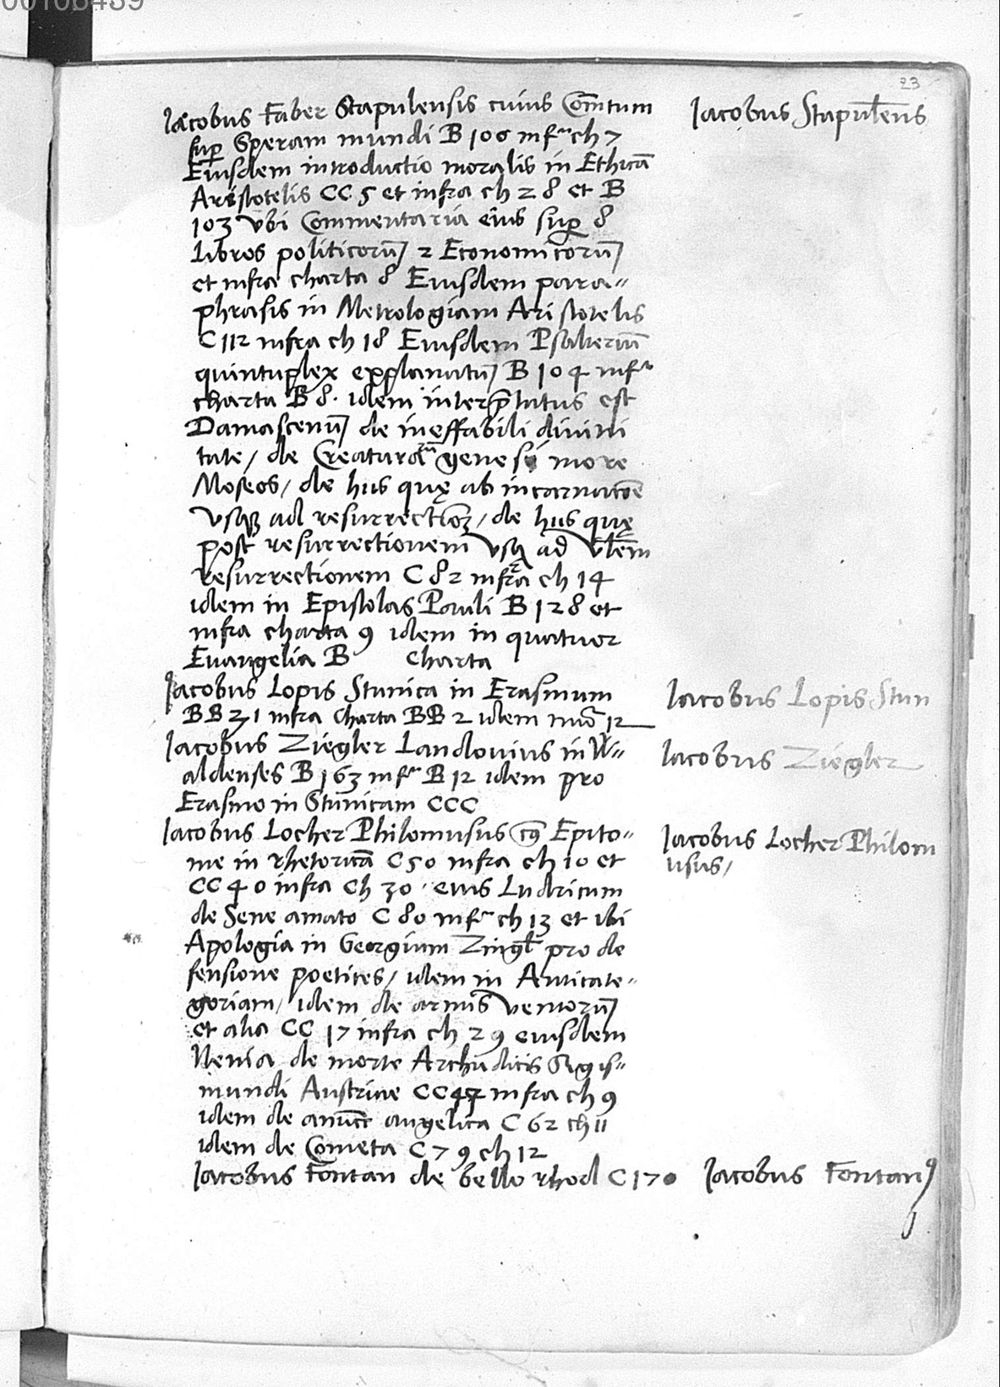 00106439
23
Iacobus Faber Stapulensis cuius Com̃tum
sup Speram mundi B 106 infr ch 7
Eiusdem introductio moralis in Ethicā
Aristotelis CC 5 et infra ch 28 et B
103 vbi Commentaria eius sup 8
Libros politicorū 2 Economicorū
et infra charta 8 Eiusdem para=
phrasis in Metrologiam Aristotelis
C 112 infra ch 18 Eiusdem Psalteriū
quintuplex explanatū B 104 infr
charta B 8. idem interp̄tatus est
Damascenū de ineffabili diuini
tate / de Creaturarū genesi more
Moseos / de hiis quę ab incarnatōe
vsqȝ ad resurrectionē / de hiis quę
post resurrectionem vsq ad vl̄em
resurrectionem C 82 infra ch 14
idem in Epistolas Pauli B 128 et
infra charta 9 idem in quatuor
Euangelia B charta
Iacobus Lopis Stunica in Erasmum
BB 21 infra charta BB 2 idem nuō 12
Iacobus Ziegler Landouius in W=
aldenses B 163 infr B 12 idem pro
Erasmo in Stunicam CCC
Iacobus Locher Philomusus cuꝰ Epito=
me in rhetoricā C 50 infra ch 10 et
CC 40 infra ch 30 · eius Ludicrum
de Sene amato C 80 infr ch 13 et ibi
Apologia in Georgium Zingl̄ pro de
fensione poetices / idem in Anticate=
goriam / idem de armis ventorū
et alia CC 17 infra ch 29 eiusdem
Nenia de morte Archiducis Sigis=
mundi Austriae CC 47 infra ch 9
idem de anūct angelica C 62 ch 11
idem de Cometa C 79 ch 12
Iacobus Fontan de bello rhod C 170
Iacobus Stapul̄ens
Iacobus Lopis Stun
Iacobus Ziegler
Iacobus Locher Philom
usus /
Iacobus Fontanꝰ